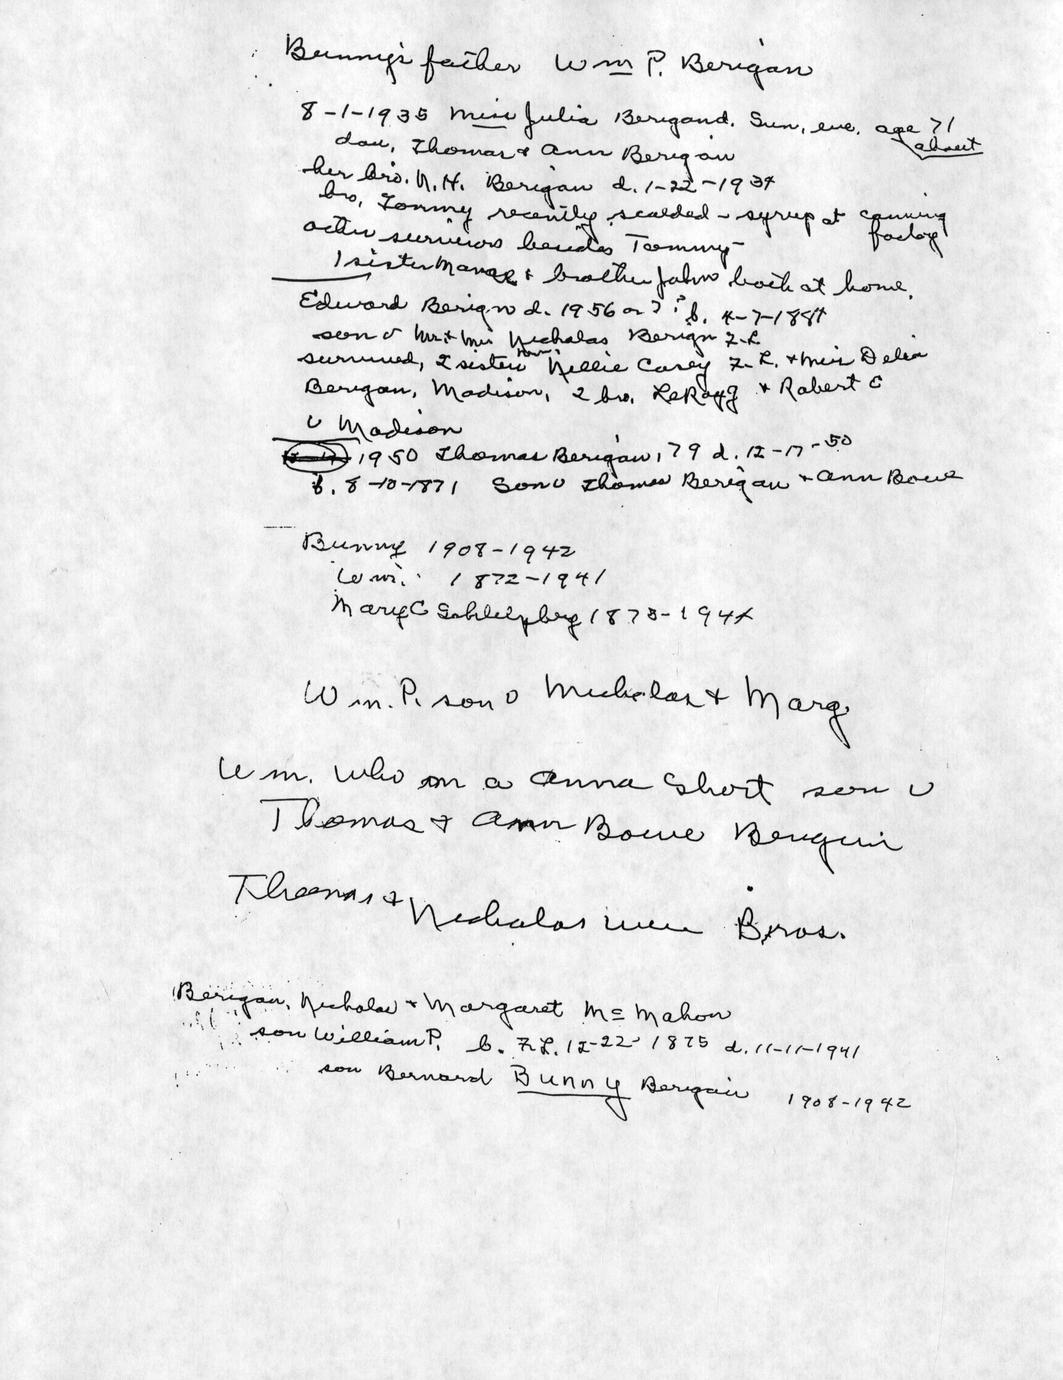 Bunny's father Wm P. Berigan
8-1-1935 Miss Julia Berigan d. Sun. eve. age 71
about
dau. Thomas & Ann Berigan
her bro. N.H. Berigan d. 1-22-1934
bro. Tommy recently scalded - syrup at canning
factory
other survivors besides Tommy -
1 sister & brother John both at home.
Edward Berign d. 1956 or 7? b. 4-7-1884
son o Mr. & Mrs Nicholas Berign F.L
survived, 2 sisters Nellie Carey F.L. & Miss Delia
Berigan, Madison, 2 bro. LeRoy & Robert E
o Madison
1950 Thomas Berigan, 79 d. 12-17-50
b. 8-10-1871 Son o Thomas Berigan & Ann Bowe
Bunny 1908-1942
Wm. 1872-1941
Mary C 1875-1944
Wm. P. son o Nicholas & Marg.
Wm. who m a Anna Short son o
Thomas & Ann Bowe Berigan
Thomas & Nicholas were Bros.
Berigan, Nicholas & Margaret Mc Mahon
son William P. b. F.L. 12-22-1875 d. 11-11-1941
son Bernard Bunny Berigan 1908-1942